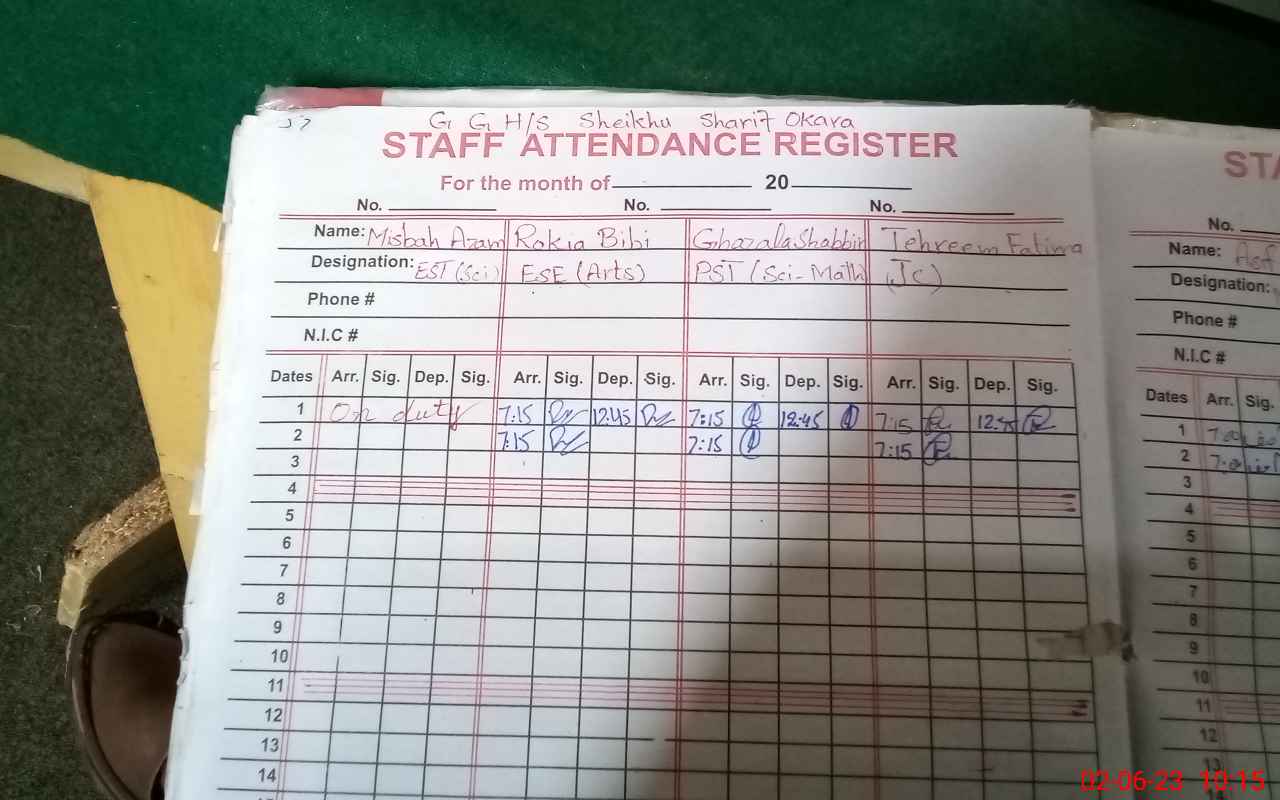 G G H/S Sheikhu Sharif Okara
STAFF ATTENDANCE REGISTER
For the month of 20
No. No. No.
Name: Misbah Azam Rokia Bibi Ghazala Shabbir Tehreem Fatima
Designation: EST (Sci) ESE (Arts) PST (Sci-Math) (JC)
Phone #
N.I.C #
Dates Arr. Sig. Dep. Sig. Arr. Sig. Dep. Sig. Arr. Sig. Dep. Sig. Arr. Sig. Dep. Sig.
1 On duty 7:15 12:45 7:15 12:45 7:15 12:45
2 7:15 7:15 7:15
3
4
5
6
7
8
9
10
11
12
13
14
STA
No.
Name:
Designation:
Phone #
N.I.C #
Dates Arr. Sig.
1
2
3
4
5
6
7
8
9
10
11
12
13
02-06-23 10:15